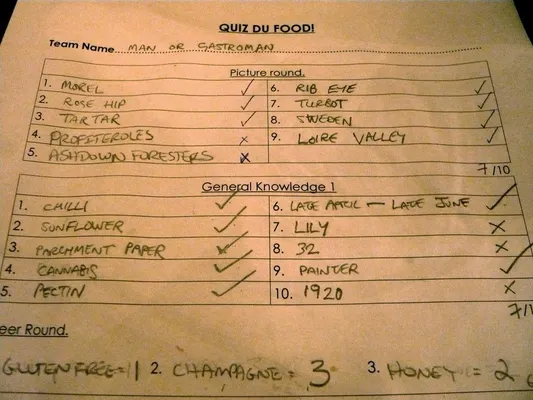 QUIZ DU FOOD!
Team Name MAN OR GASTROMAN
Picture round.
1. MOREL
2. ROSE HIP
3. TARTAR
4. PROFITEROLES
5. ASHDOWN FORESTERS
6. RIB EYE
7. TURBOT
8. SWEDEN
9. LOIRE VALLEY
7/10
General Knowledge 1
1. CHILLI
2. SUNFLOWER
3. PARCHMENT PAPER
4. CANNABIS
5. PECTIN
6. LATE APRIL - LATE JUNE
7. LILY
8. 32
9. PAINTER
10. 1920
7/1
eer Round.
GLUTEN FREE = 1 2. CHAMPAGNE = 3 3. HONEY = 2